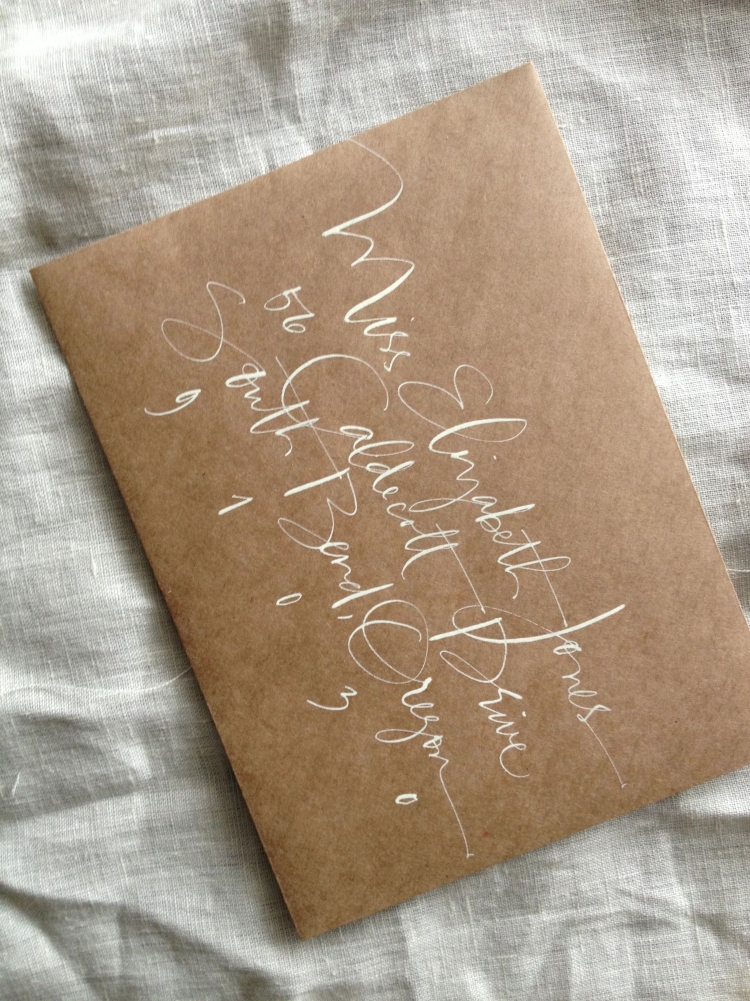 Miss Elizabeth Jones
56 Caldecott Drive
South Bend, Oregon
9 1 0 3 0